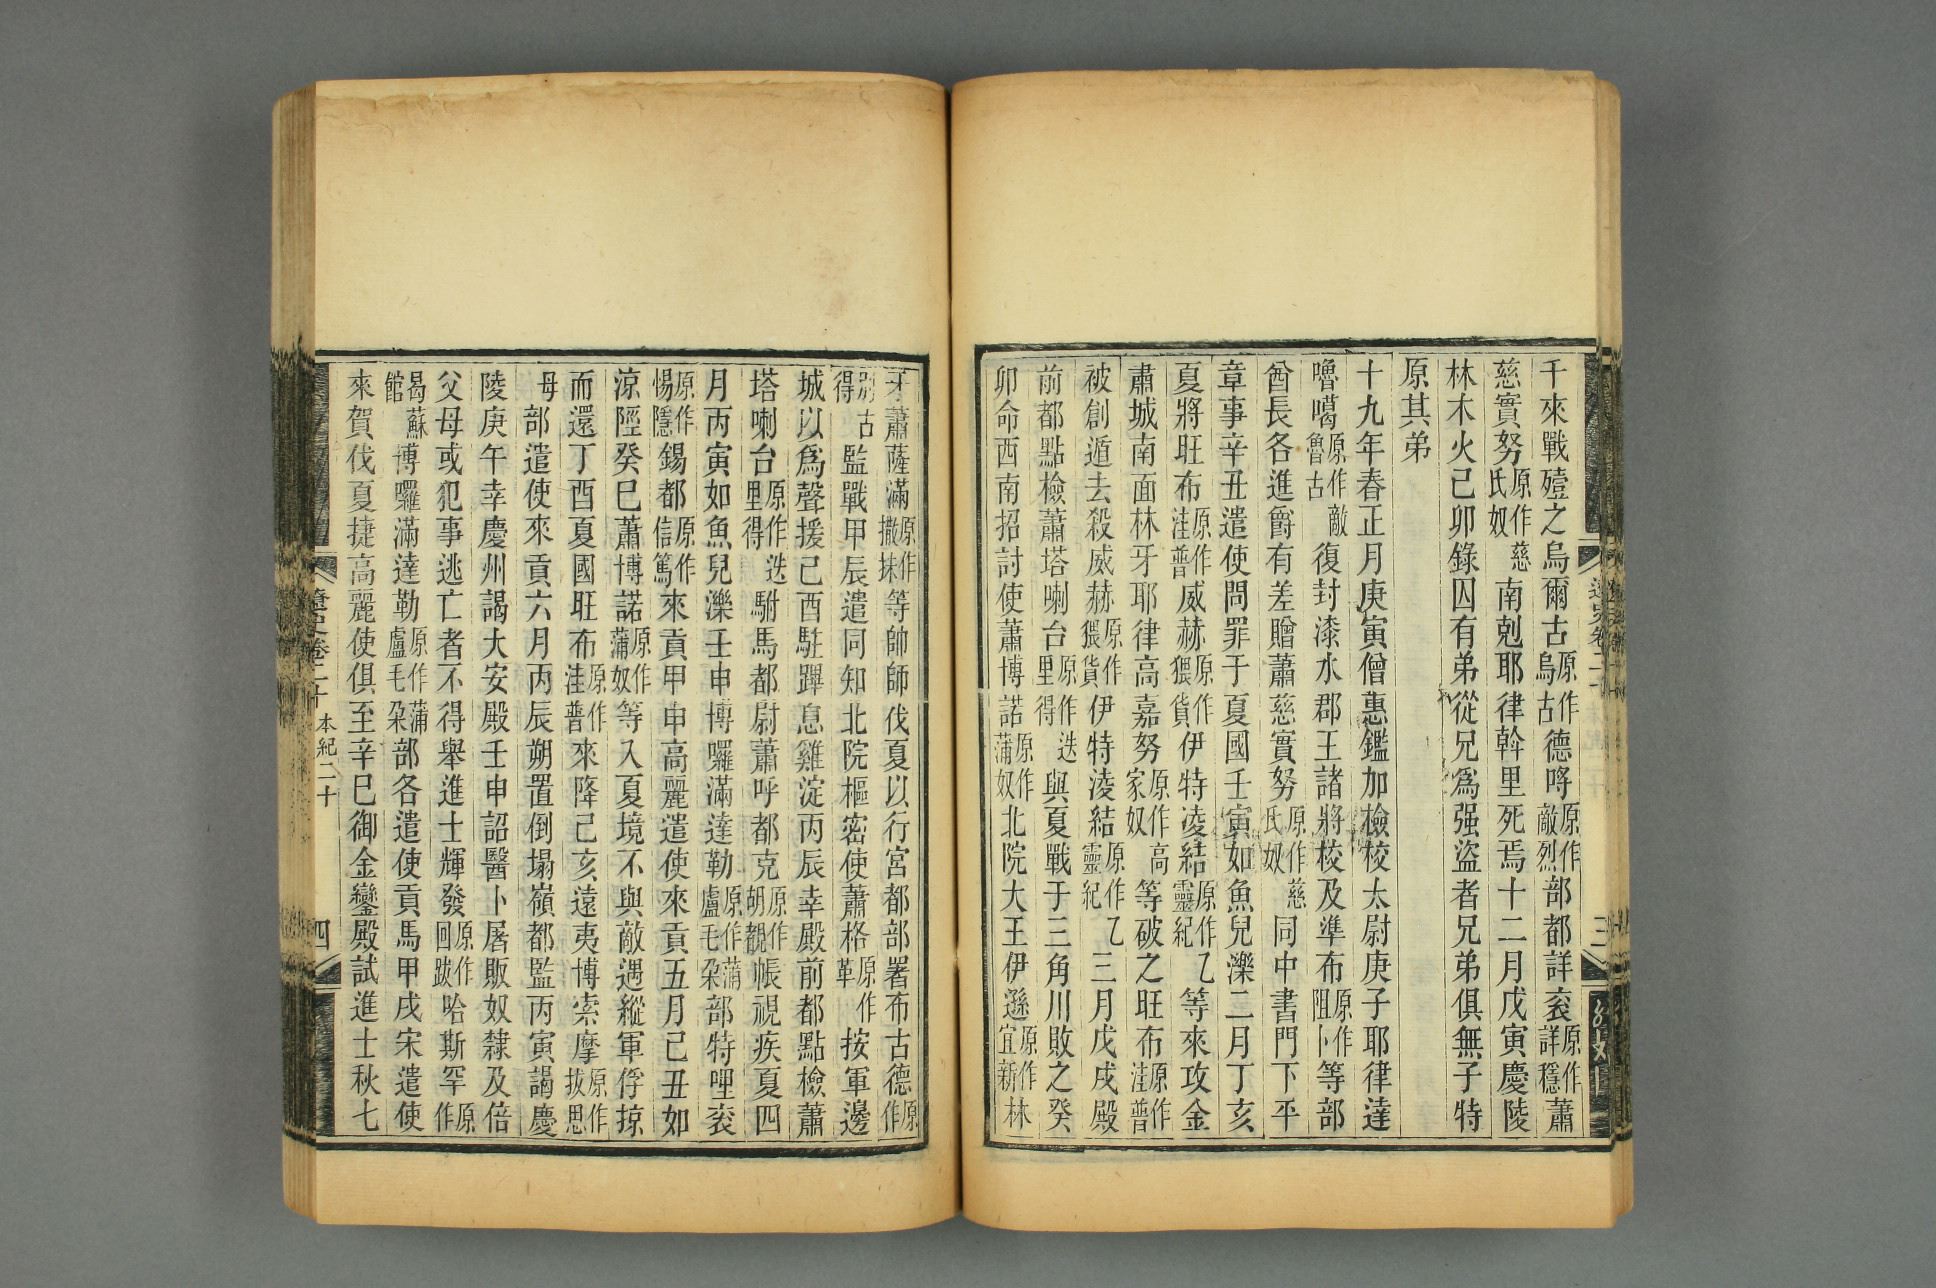 千來戰殪之烏爾古原作烏古德哷原作敵烈部都詳衮原作詳穩蕭
慈實努原作慈氏奴南剋耶律斡里死焉十二月戊寅慶陵
林木火己卯錄囚有弟從兄爲强盜者兄弟俱無子特
原其弟
十九年春正月庚寅僧惠鑑加檢校太尉庚子耶律達
嚕噶原作敵魯古復封漆水郡王諸將校及準布原作阻卜等部
酋長各進爵有差贈蕭慈實努原作慈氏奴同中書門下平
章事辛丑遣使問罪于夏國壬寅如魚兒濼二月丁亥
夏將旺布原作洼普威赫原作猥貨伊特凌結原作乙靈紀等來攻金
肅城南面林牙耶律高嘉努原作高家奴等破之旺布原作洼普
被創遁去殺威赫原作猥貨伊特淩結原作乙靈紀三月戊戌殿
前都點檢蕭塔喇台原作迭里得與夏戰于三角川敗之癸
卯命西南招討使蕭博諾原作蒲奴北院大王伊遜原作宜新林
牙蕭薩滿原作撒抹等帥師伐夏以行宮都部署布古德原作
別古得監戰甲辰遣同知北院樞密使蕭格原作革按軍邊
城以爲聲援己酉駐蹕息雞淀丙辰幸殿前都點檢蕭
塔喇台原作迭里得駙馬都尉蕭呼都克原作胡覩帳視疾夏四
月丙寅如魚兒濼壬申博囉滿達勒原作蒲盧毛朶部特哩衮
惕隱原作錫都原作信篤來貢甲申高麗遣使來貢五月己丑如
涼陘癸巳蕭博諾原作蒲奴等入夏境不與敵遇縱軍俘掠
而還丁酉夏國旺布原作洼普來降己亥遠夷博索摩原作拔思
母部遣使來貢六月丙辰朔置倒塌嶺都監丙寅謁慶
陵庚午幸慶州謁大安殿壬申詔醫卜屠販奴隸及倍
父母或犯事逃亡者不得舉進士輝發原作回跋哈斯罕原作
曷蘇館博囉滿達勒原作蒲盧毛朶部各遣使貢馬甲戌宋遣使
來賀伐夏捷高麗使俱至辛巳御金鑾殿試進士秋七
遼史卷二十 本紀二十 四